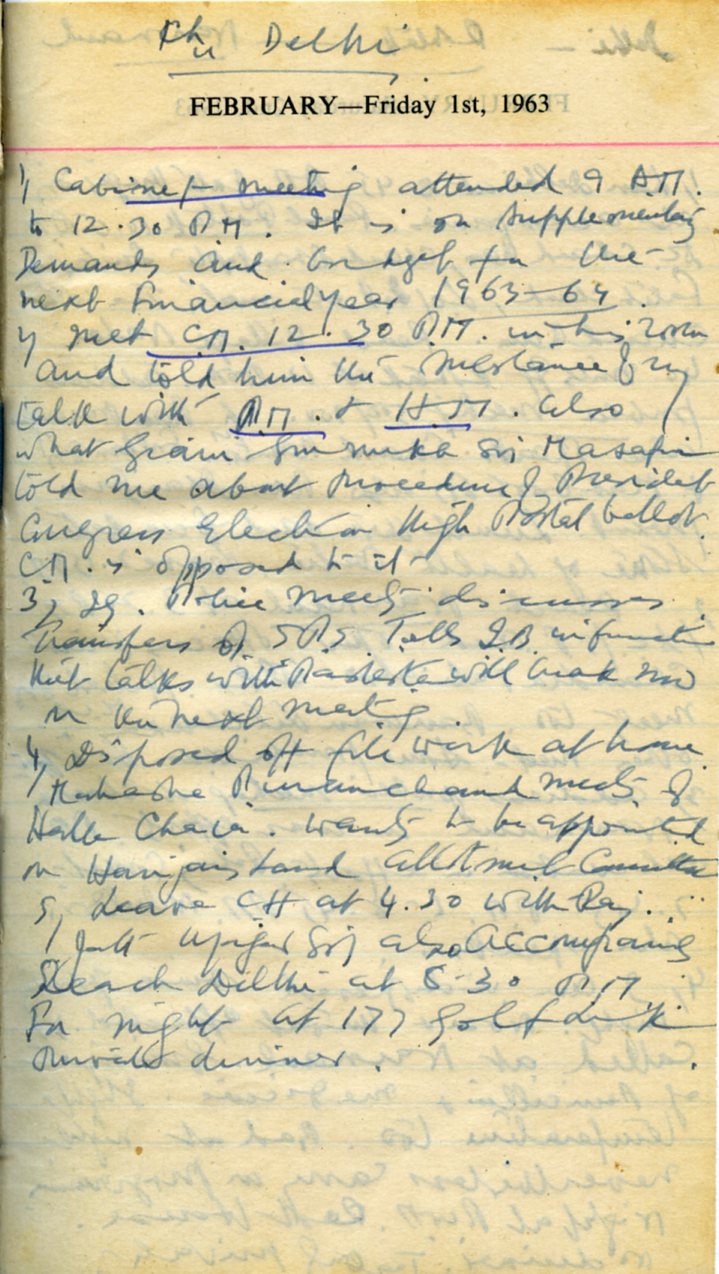 Delhi
FEBRUARY—Friday 1st, 1963
1, Cabinet meeting attended 9 A.M.
to 12.30 P.M. It is on Supplementary
Demands and budget for the
next Financial year 1963-64.
2, met C.M. 12.30 P.M. in his room
and told him the substance of my
talk with P.M. & H.M. also
what Giani Gurmukh Singh Musafir
told me about Procedure of President
Congress Election through Postal ballot.
C.M. is opposed to it
3, IG. Police meets discusses
Transfers of S.P.S. Tells
that talks with will break now
in the next meeting
4, Disposed off file work at home
meets of
Halka wants to be appointed
on Harijan Land allotment Committee
5, Leave CH at 4.30 with Raj..
Singh also accompanies
Reach Delhi at 8.30 P.M
For night at 177 Golf Link
Private dinner.